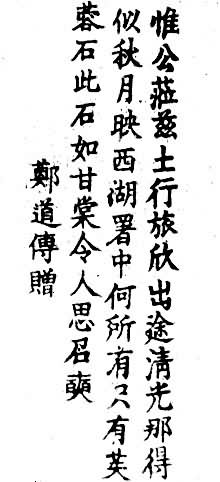 惟公蒞茲土行旅欣出途清光那得
似秋月映西湖署中何所有只有芙
蓉石此石如甘棠令人思召奭
鄭道傳贈